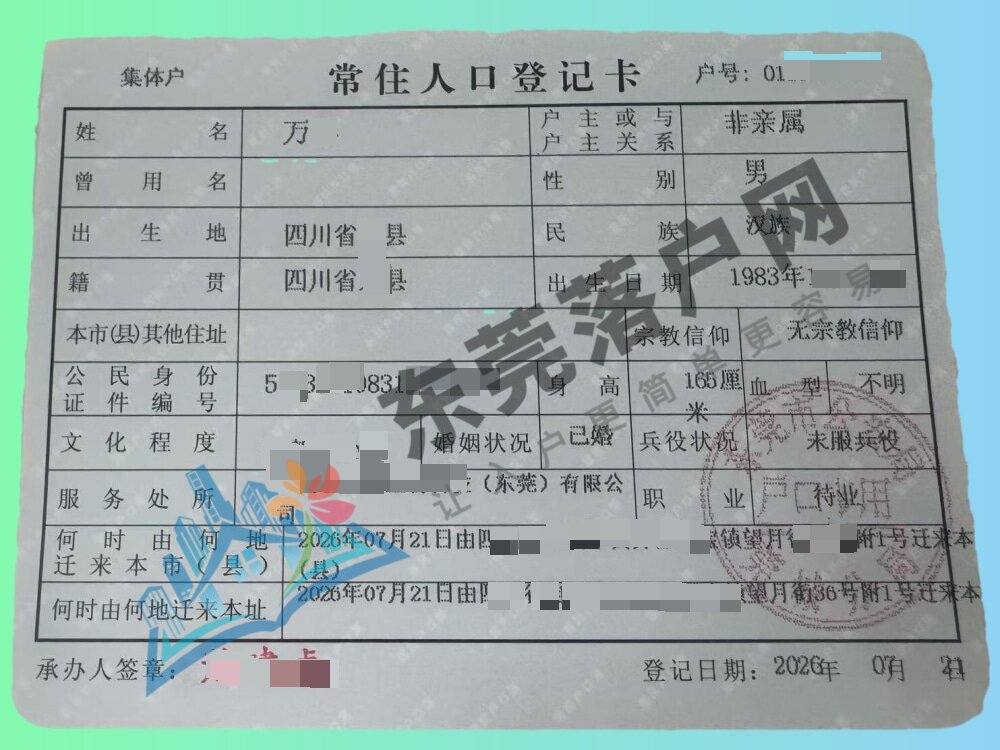 集体户 常住人口登记卡 户号：01
姓名 万 户主或与户主关系 非亲属
曾用名 性别 男
出生地 四川省 县 民族 汉族
籍贯 四川省 县 出生日期 1983年1
本市(县)其他住址 宗教信仰 无宗教信仰
公民身份证件编号 5 3 19831 身高 165厘米 血型 不明
文化程度 婚姻状况 已婚 兵役状况 未服兵役
服务处所 （东莞）有限公司 职业 待业
何时由何地迁来本市（县） 2026年07月21日由四 镇望月街 附1号迁来本(县)
何时由何地迁来本址 2026年07月21日由四 望月街36号附1号迁来本
承办人签章： 登记日期：2026年 07月 21日
东莞落户网
让入户更简单更容易
户口专用